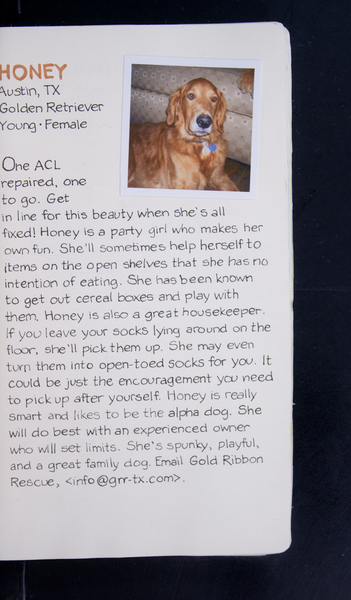 HONEY
Austin, TX
Golden Retriever
Young · Female
One ACL
repaired, one
to go. Get
in line for this beauty when she's all
fixed! Honey is a party girl who makes her
own fun. She'll sometimes help herself to
items on the open shelves that she has no
intention of eating. She has been known
to get out cereal boxes and play with
them. Honey is also a great housekeeper.
If you leave your socks lying around on the
floor, she'll pick them up. She may even
turn them into open-toed socks for you. It
could be just the encouragement you need
to pick up after yourself. Honey is really
smart and likes to be the alpha dog. She
will do best with an experienced owner
who will set limits. She's spunky, playful,
and a great family dog. Email Gold Ribbon
Rescue, <info@grr-tx.com>.